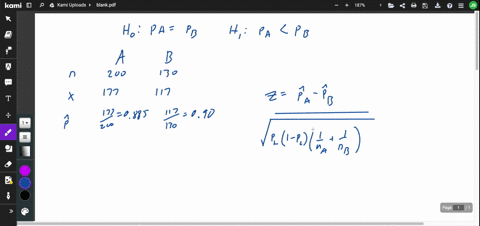 kami
Kami Uploads
blank.pdf
187%
H₀: PA = PB H₁: PA < PB
A B
n 200 130
x 177 117
p̂ 177/200 = 0.885 117/130 = 0.90
z = p̂A - p̂B
√(P̂(1-P̂)(1/nA + 1/nB))
Page 1 / 1